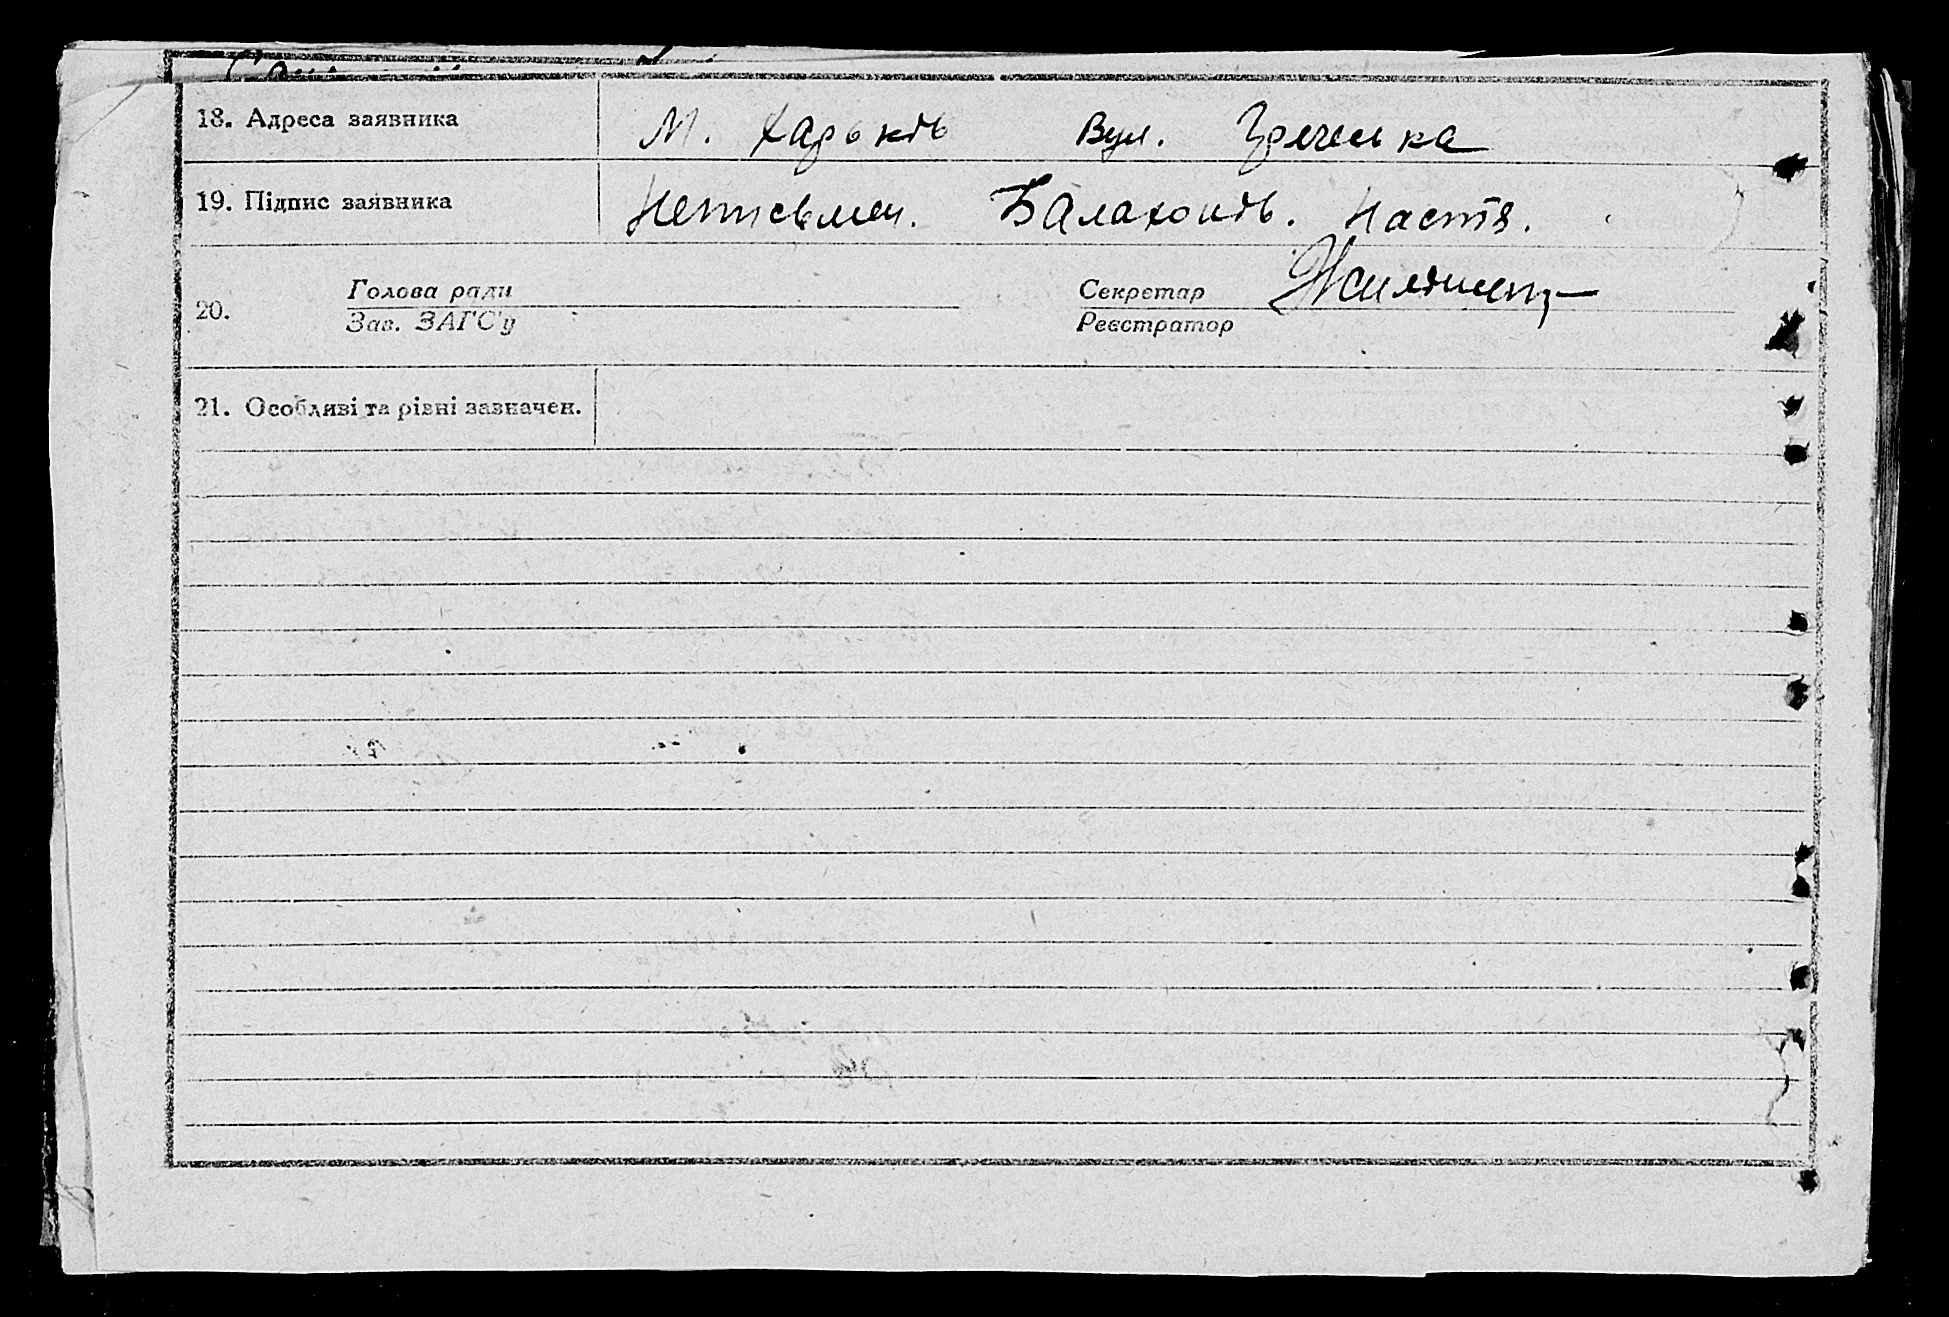 18. Адреса заявника М. Харьків Вул. Гречеська
19. Підпис заявника Неписьмен. Балахонів. Настя.
Голова ради Секретар
20. Зав. ЗАГС'у Реєстратор
21. Особливі та рівні зазначен.